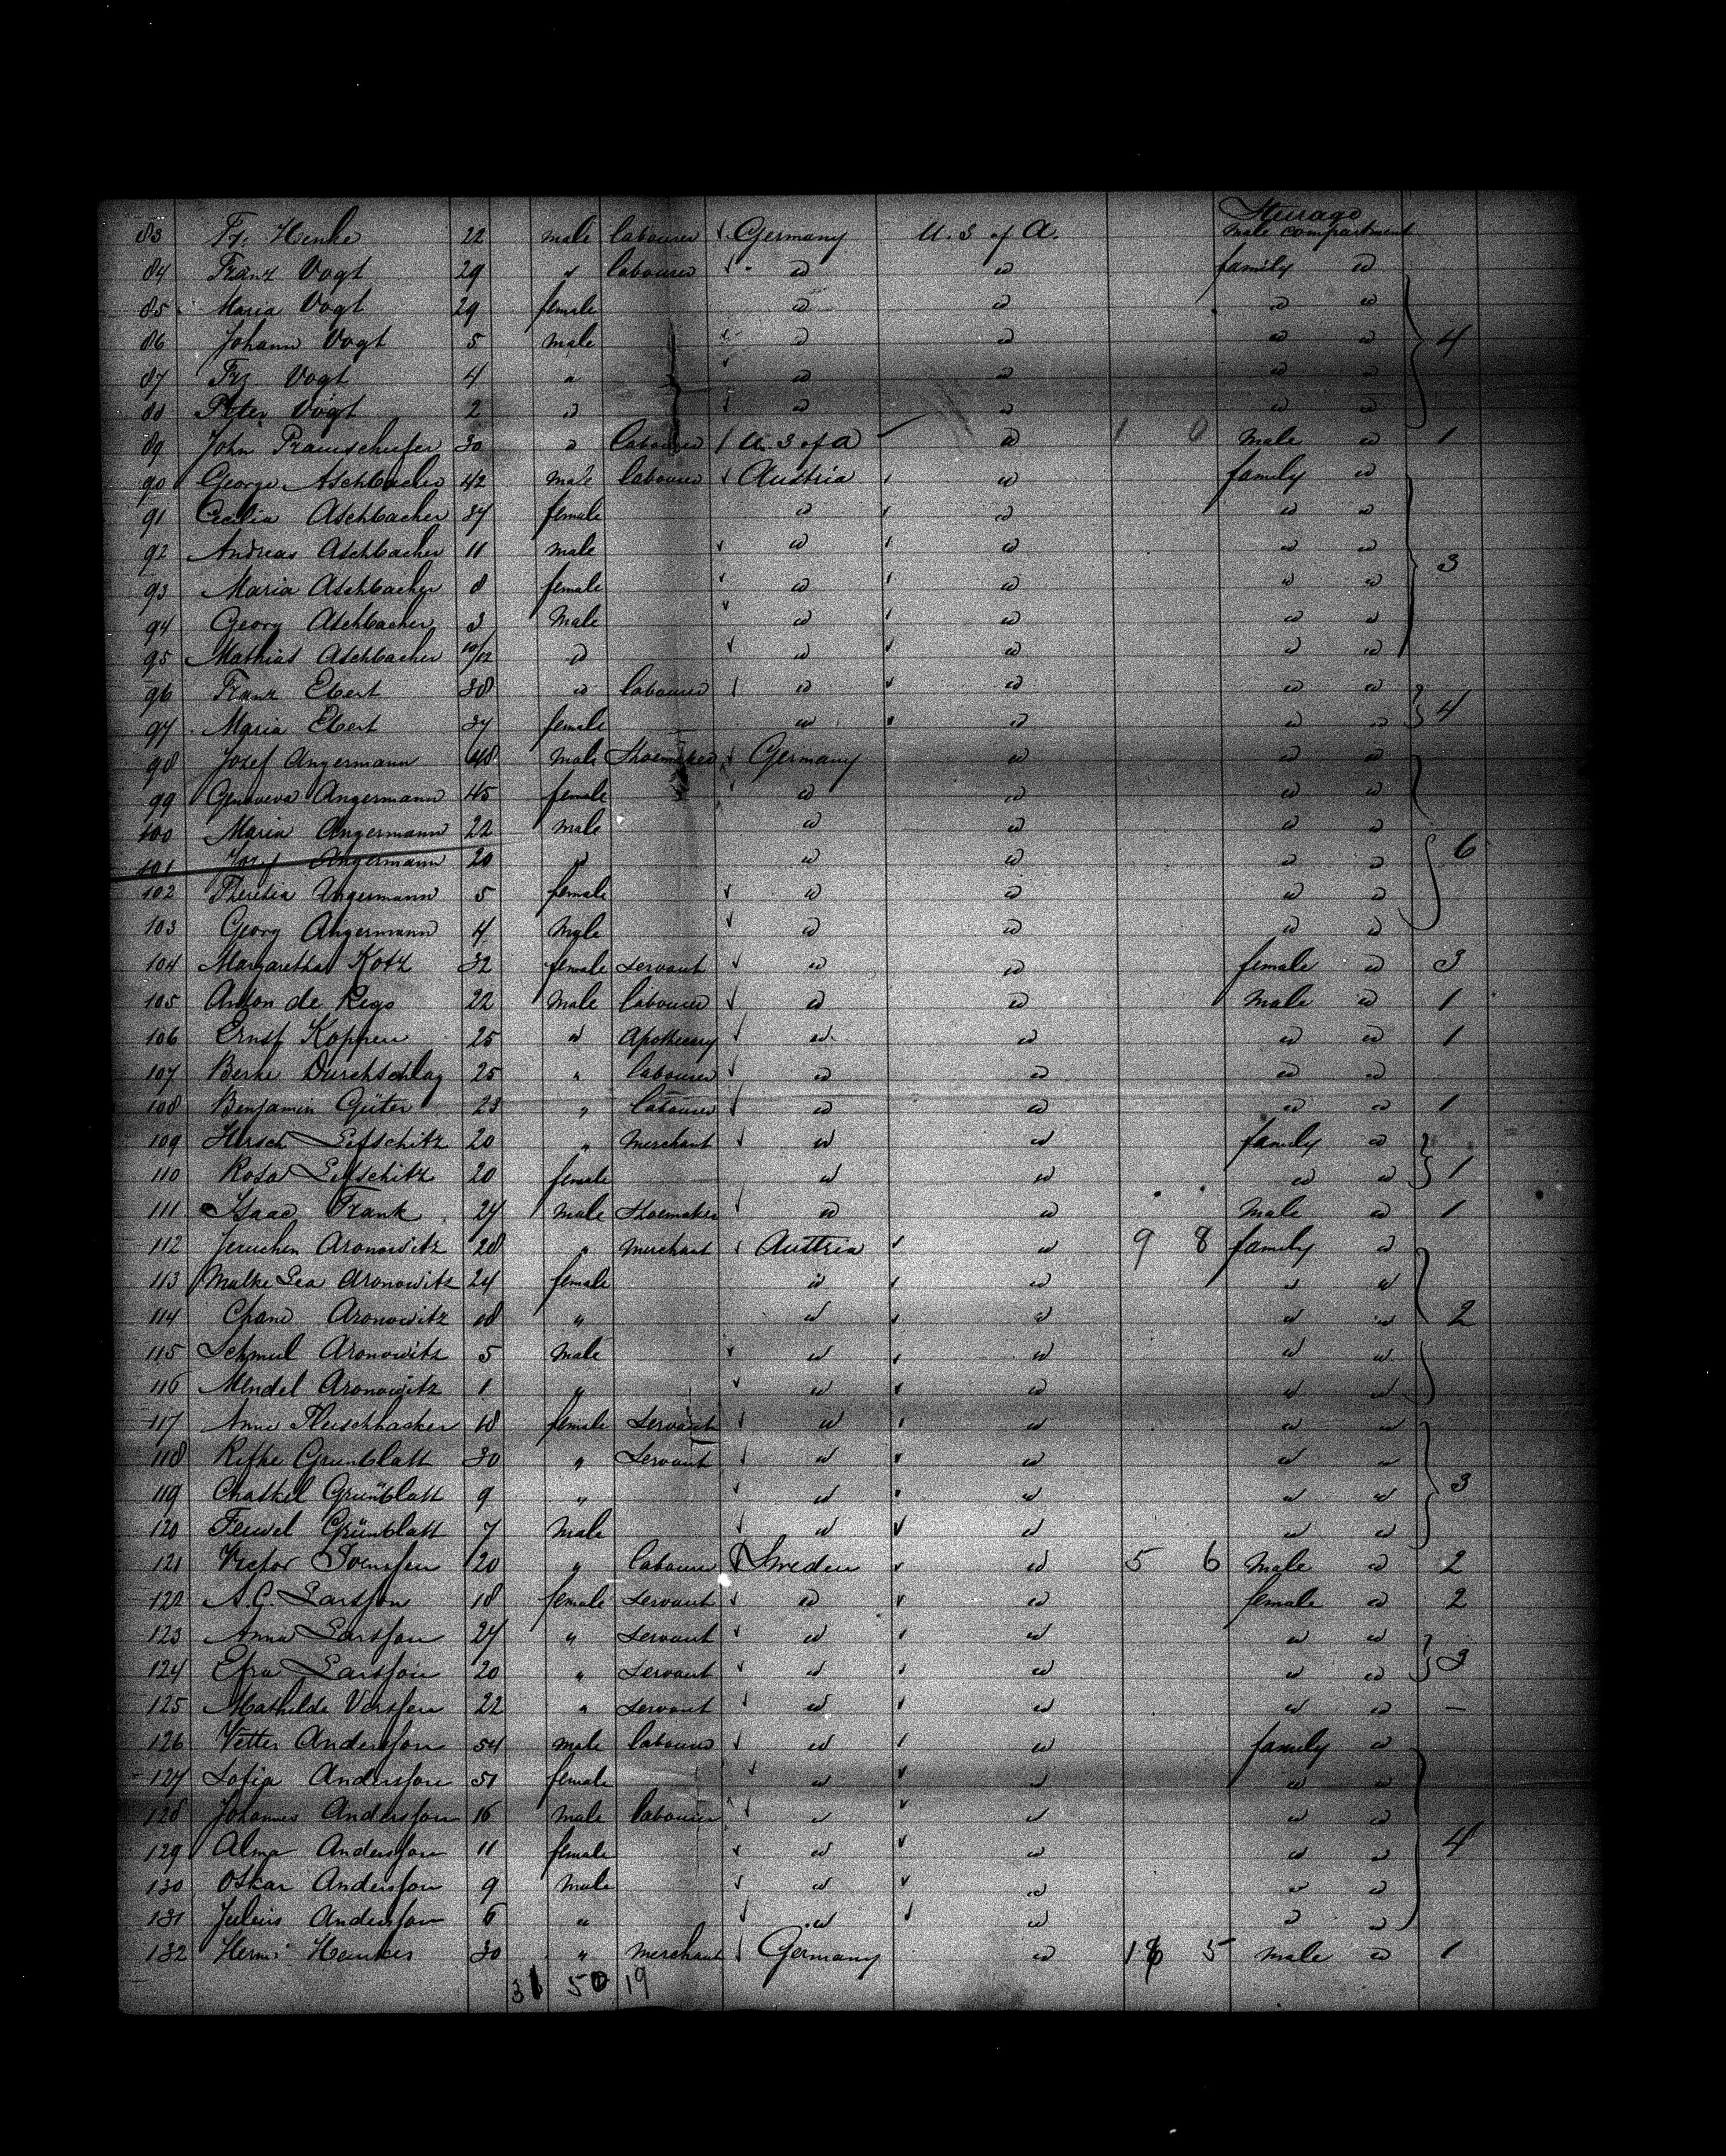 Steerage
83 Fr. Henke 22 male labourer Germany U. S of A. male compartment
84 Franz Vogt 29 " labourer " do do family do
85 Maria Vogt 29 female do do do do
86 Johann Vogt 5 male do do do do 4
87 Frz Vogt 4 " do do do do
88 Peter Vogt 2 do do do do do
89 John 30 do labourer U. S of A do 1 0 male do 1
90 George Aschbacher 42 male labourer Austria do family do
91 Cecilia Aschbacher 37 female do do do do
92 Andreas Aschbacher 11 male do do do do 3
93 Maria Aschbacher 8 female do do do do
94 Georg Aschbacher 3 Male do do do do
95 Mathias Aschbacher 10/12 do do do do do
96 Franz Ebert 38 do labourer do do do do 4
97 Maria Ebert 37 female do do do do
98 Josef Angermann 48 Male Shoemaker Germany do do do
99 Genoveva Angermann 45 female do do do do
100 Maria Angermann 22 male do do do do
101 Josef Angermann 20 do do do do do 6
102 Theresia Angermann 5 female do do do do
103 Georg Angermann 4 Male do do do do
104 Margaretha Kotz 32 female Servant do do female do 3
105 Anton de Rego 22 Male labourer do do Male do 1
106 Ernst Koppen 25 do Apothecary do do do do 1
107 Berke Durchschlag 25 " labourer do do do do
108 Benjamin Güter 23 " labourer do do do do 1
109 Hirsch Lefschitz 20 " Merchant do do family do
110 Rosa Lefschitz 20 female do do do do 1
111 Isaac Frank 24 male Shoemaker do do Male do 1
112 Jeruchen Aronowitz 28 " Merchant Austria do 9 8 family do
113 Malke Lea Aronowitz 24 female do do do do
114 Chane Aronowitz 18 " do do do do 2
115 Schmul Aronowitz 5 Male do do do do
116 Mendel Aronowitz 1 " do do do do
117 Anna Fleischhacker 18 female Servant do do do do
118 Rifke Grünblatt 30 " Servant do do do do
119 Chaskel Grünblatt 9 " do do do do 3
120 Feiwel Grünblatt 7 Male do do do do
121 Victor Svensson 20 " labourer Sweden do 5 6 Male do 2
122 A. C. Larsson 18 female Servant do do female do 2
123 Anna Larsson 24 " Servant do do do do
124 Larsson 20 " Servant do do do do 3
125 Mathilde 22 " Servant do do do do —
126 Andersson 54 male labourer do do family do
127 Sofia Andersson 51 female do do do do
128 Johannes Andersson 16 male labourer do do do do
129 Alma Andersson 11 female do do do do 4
130 Oskar Andersson 9 Male do do do do
131 Julius Andersson 6 " do do do do
132 Herm. 30 " Merchant Germany do 16 5 male do 1
31 50 19